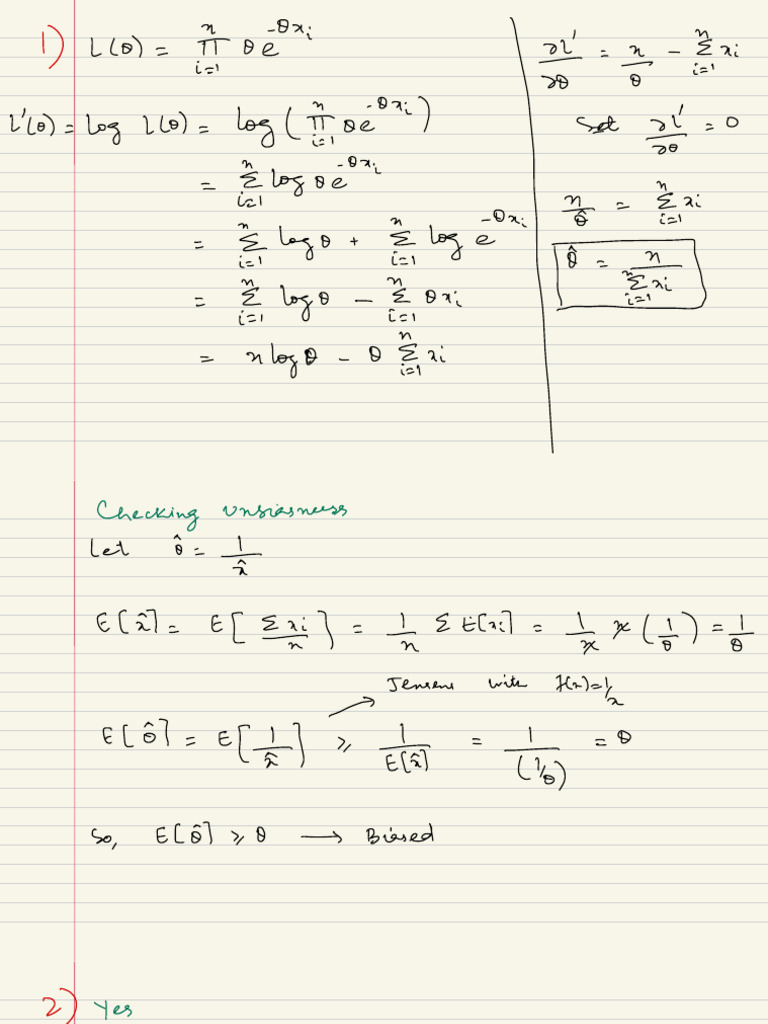 1) L(θ) = ∏_{i=1}^{n} θe^{-θx_i}
L'(θ) = log L(θ) = log(∏_{i=1}^{n} θe^{-θx_i})
= Σ_{i=1}^{n} log θe^{-θx_i}
= Σ_{i=1}^{n} log θ + Σ_{i=1}^{n} log e^{-θx_i}
= Σ_{i=1}^{n} log θ - Σ_{i=1}^{n} θx_i
= n log θ - θ Σ_{i=1}^{n} x_i
∂L'/∂θ = n/θ - Σ_{i=1}^{n} x_i
Set ∂L'/∂θ = 0
n/θ̂ = Σ_{i=1}^{n} x_i
θ̂ = n/Σ_{i=1}^{n} x_i
Checking unbiasness
Let θ̂ = 1/x̂
E[x̂] = E[Σx_i/n] = 1/n Σ E[x_i] = 1/n n (1/θ) = 1/θ
Jensens with f(x)=1/x
E[θ̂] = E[1/x̂] ≥ 1/E[x̂] = 1/(1/θ) = θ
So, E[θ̂] ≥ θ → Biased
2) Yes